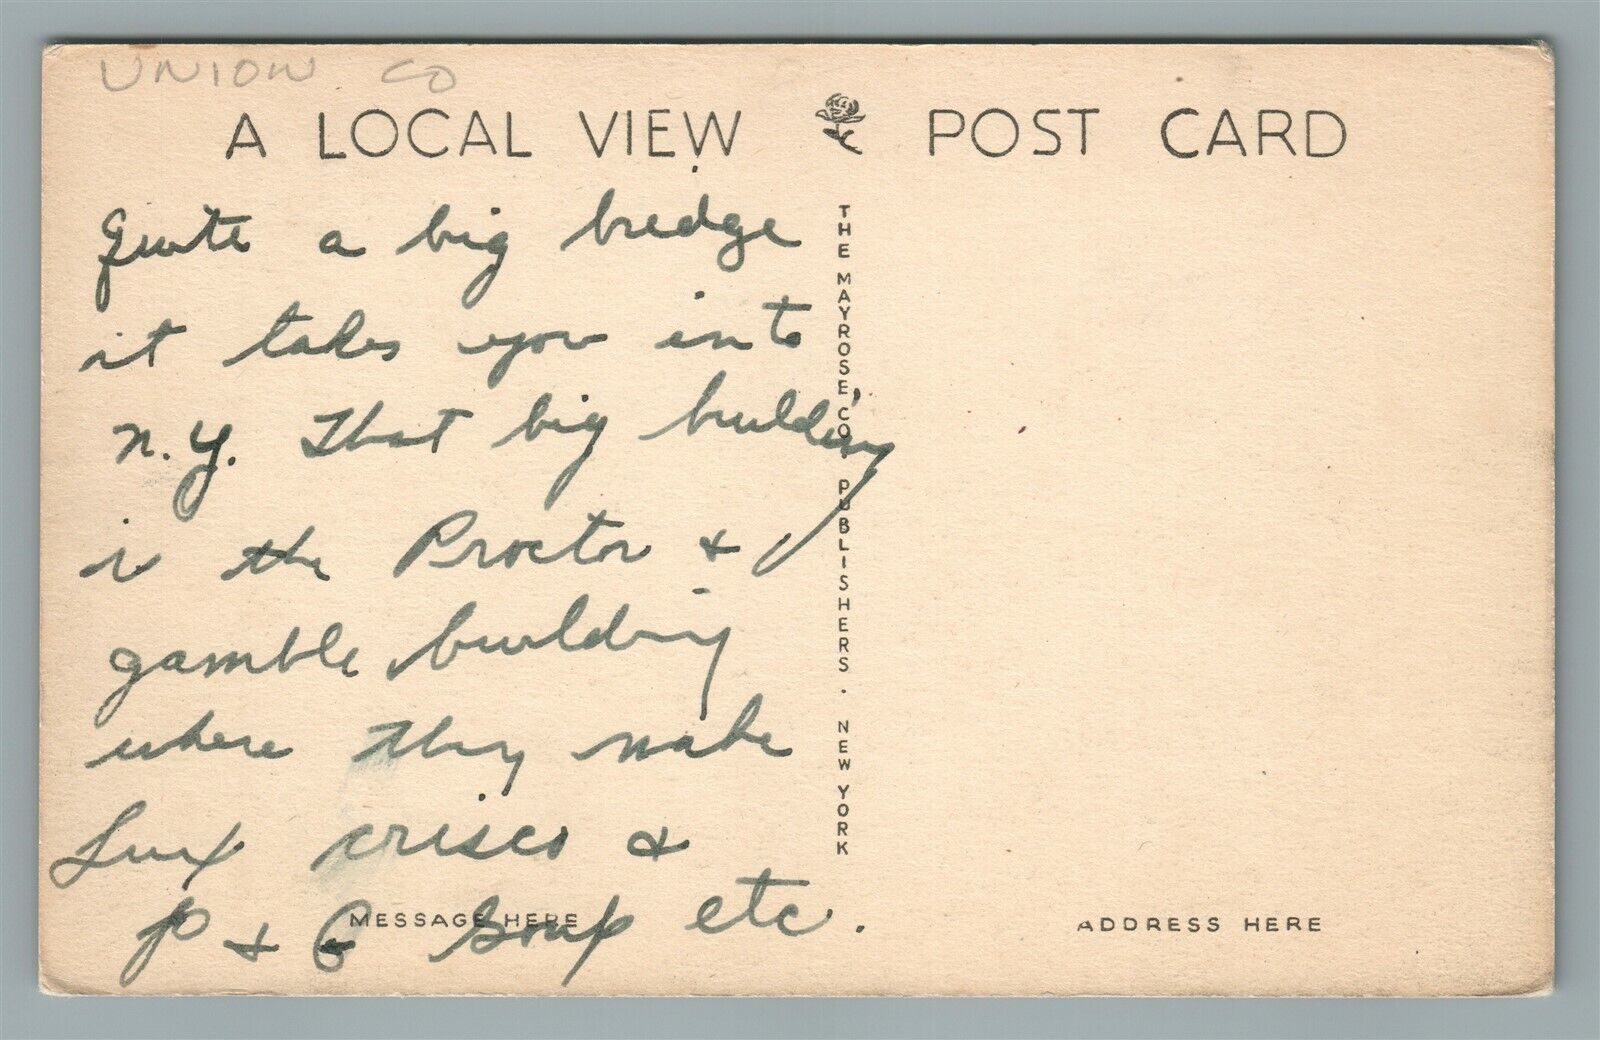 UNION CO
A LOCAL VIEW POST CARD
Quite a big bredge
it takes you into
N.Y. That big building
is the Proctor &
gamble building
where they make
Lux crisco &
P & G Soap etc.
THE MAYROSE CO., PUBLISHERS. NEW YORK
MESSAGE HERE
ADDRESS HERE